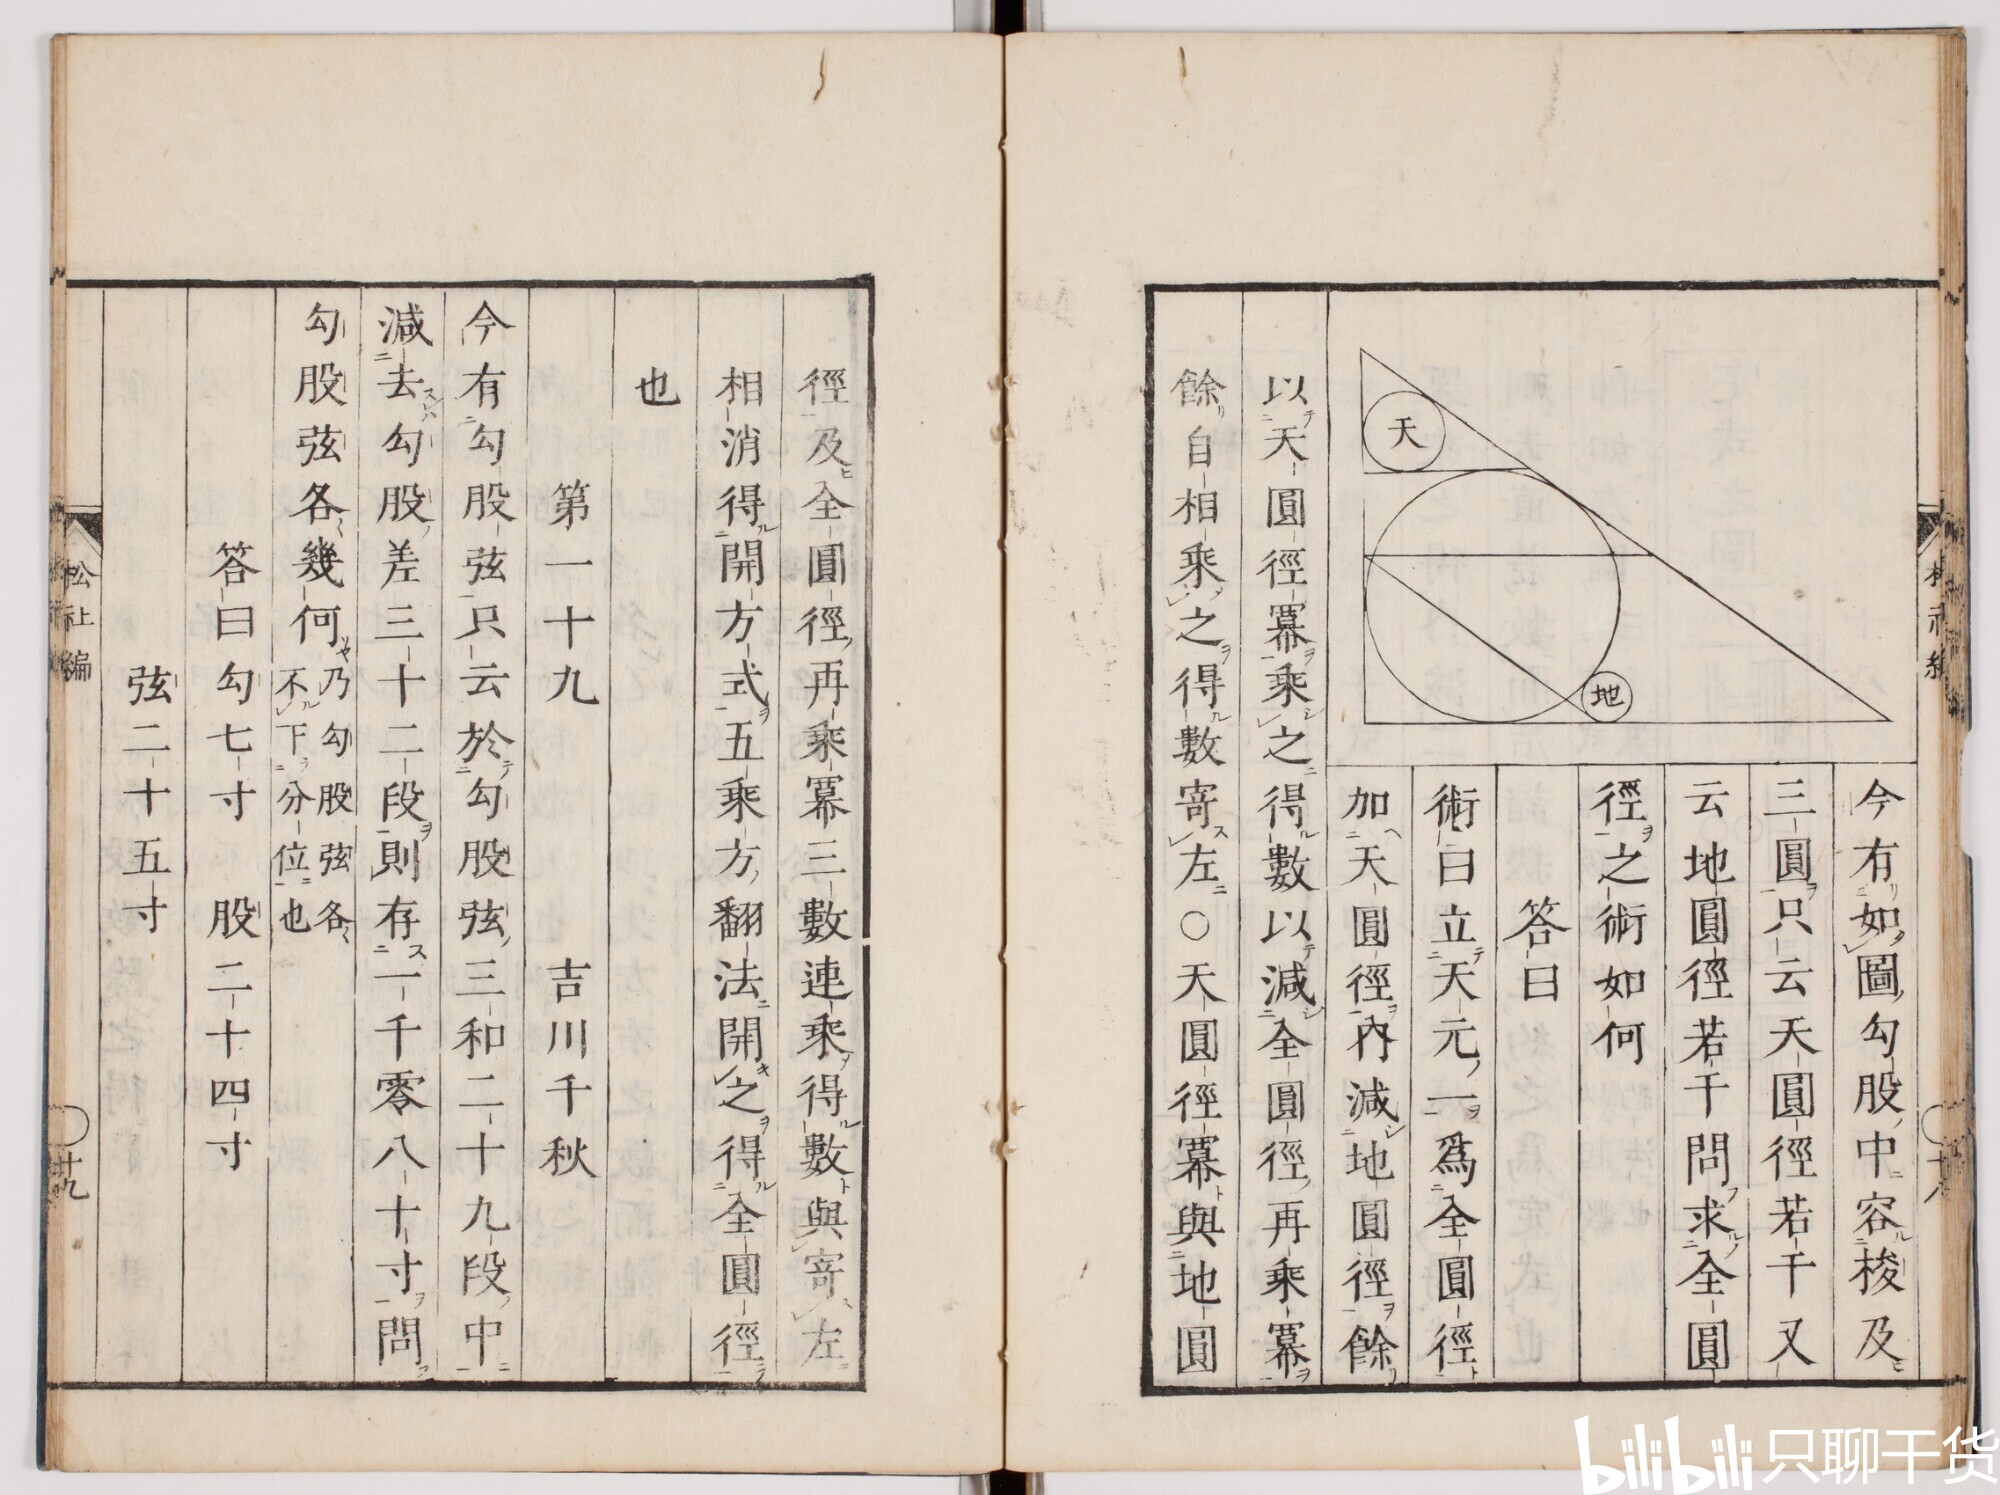 天
地
今有如圖勾股中容梭及
三圓只云天圓徑若干又
云地圓徑若干問求全圓
徑之術如何
答曰
術曰立天元一爲全圓徑
加天圓徑內減地圓徑餘
以天圓徑冪乘之得數以減全圓徑再乘冪
餘自相乘之得數寄左○天圓徑冪與地圓
徑及全圓徑再乘冪三數連乘得數與寄左
相消得開方式五乘方翻法開之得全圓徑
也
第一十九 吉川千秋
今有勾股弦只云於勾股弦三和二十九段中
減去勾股差三十二段則存一千零八十寸問
勾股弦各幾何乃勾股弦各不下分位也
答曰勾七寸 股二十四寸
弦二十五寸
松社編
十九
bilibili 只聊干货